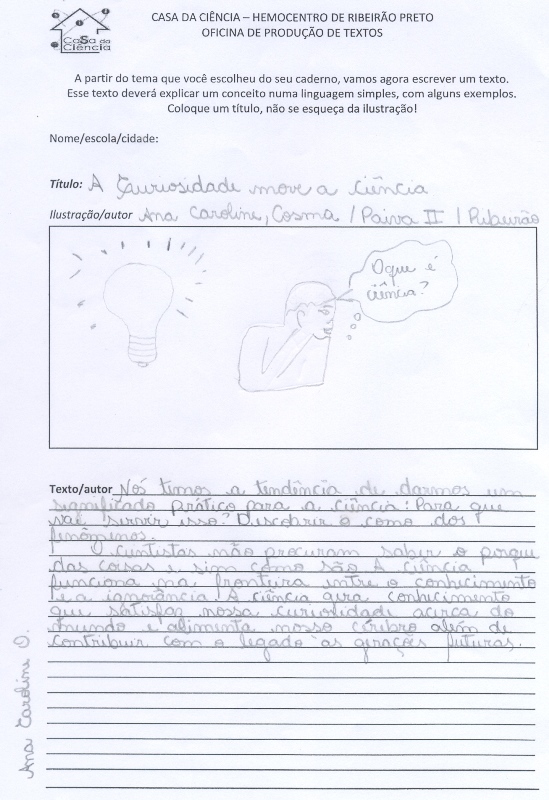 Casa da
Ciência
CASA DA CIÊNCIA – HEMOCENTRO DE RIBEIRÃO PRETO
OFICINA DE PRODUÇÃO DE TEXTOS
A partir do tema que você escolheu do seu caderno, vamos agora escrever um texto.
Esse texto deverá explicar um conceito numa linguagem simples, com alguns exemplos.
Coloque um título, não se esqueça da ilustração!
Nome/escola/cidade:
Título: A Curiosidade move a ciência
Ilustração/autor Ana Caroline, Cosma / Paiva II / Ribeirão
Oque é
ciência?
Texto/autor Nós temos a tendência de darmos um
significado prático para a ciência: Para que
vai servir isso? Descobrir o como dos
fenômenos.
O cientistas não procuram saber o porque
das coisas e sim como são A ciência
funciona na fronteira entre o conhecimento
e a ignorância! A ciência gera conhecimento
que satisfaz nossa curiosidade acerca do
mundo e alimenta nosso cérebro além de
contribuir com o legado às gerações futuras.
Ana Caroline O.